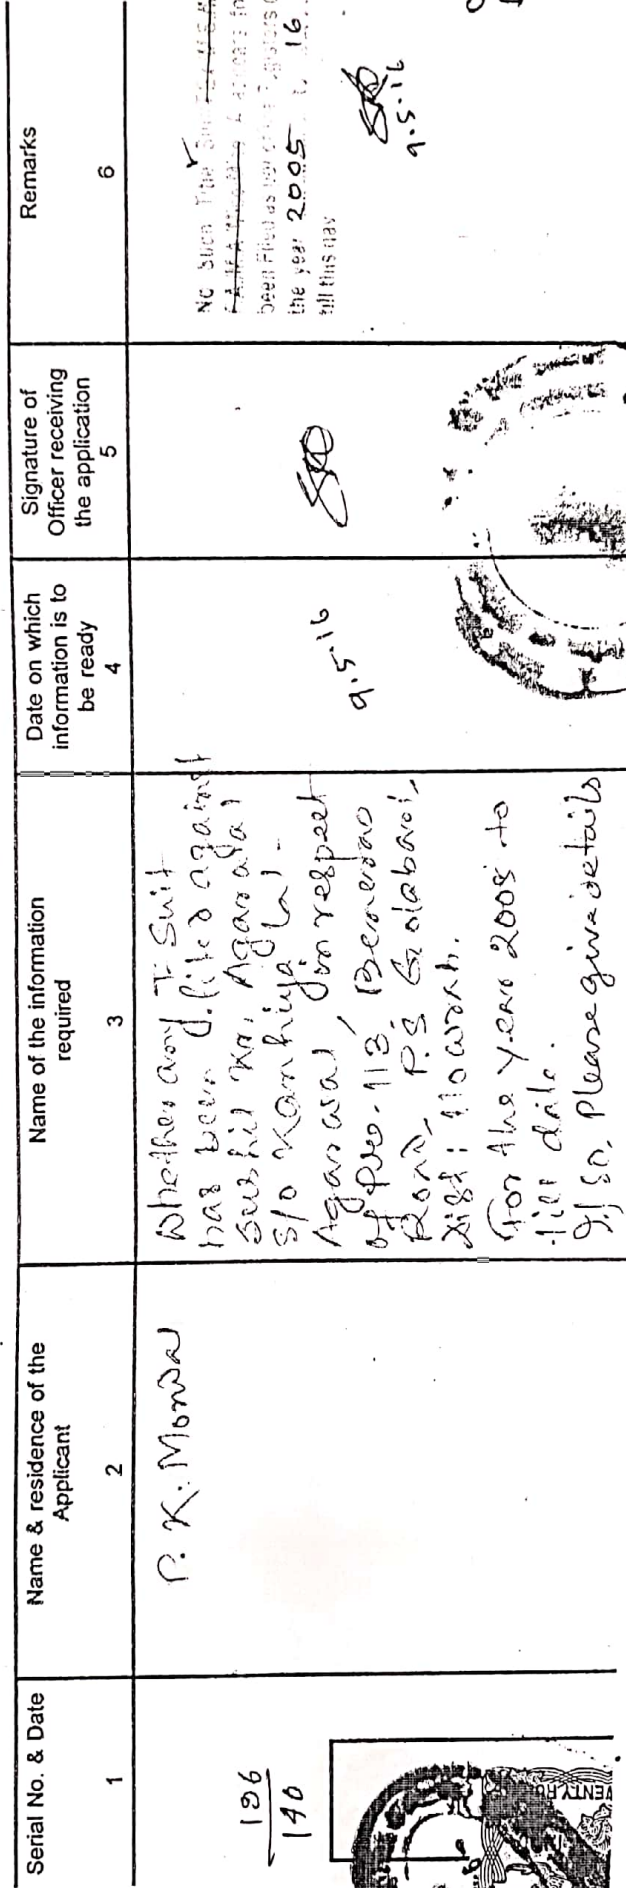 Serial No. & Date
1
Name & residence of the
Applicant
2
Name of the information
required
3
Date on which
information is to
be ready
4
Signature of
Officer receiving
the application
5
Remarks
6
126
140
P. K. Mondal
Whether any T Suit
has been filed against
Sushil Kr. Agarwal
S/o Kanhiya Lal
Agarwal, in respect
of Pre. 113, Benerus
Road, P.S. Golabari,
Dist: Howrah.
For the years 2005 to
till date.
If so, Please give details
9.5.16
No Such Title
appears
been Filed as per
the year 2005 to 16
till this day
9.5.16